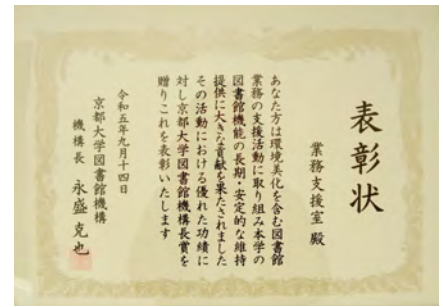 表彰状
業務支援室 殿
あなた方は環境美化を含む図書館
業務の支援活動に取り組み本学の
図書館機能の長期・安定的な維持
提供に大きな貢献を果たされました
その活動における優れた功績に
対し京都大学図書館機構長賞を
贈りこれを表彰いたします
令和五年九月十四日
京都大学図書館機構
機構長 永盛克也